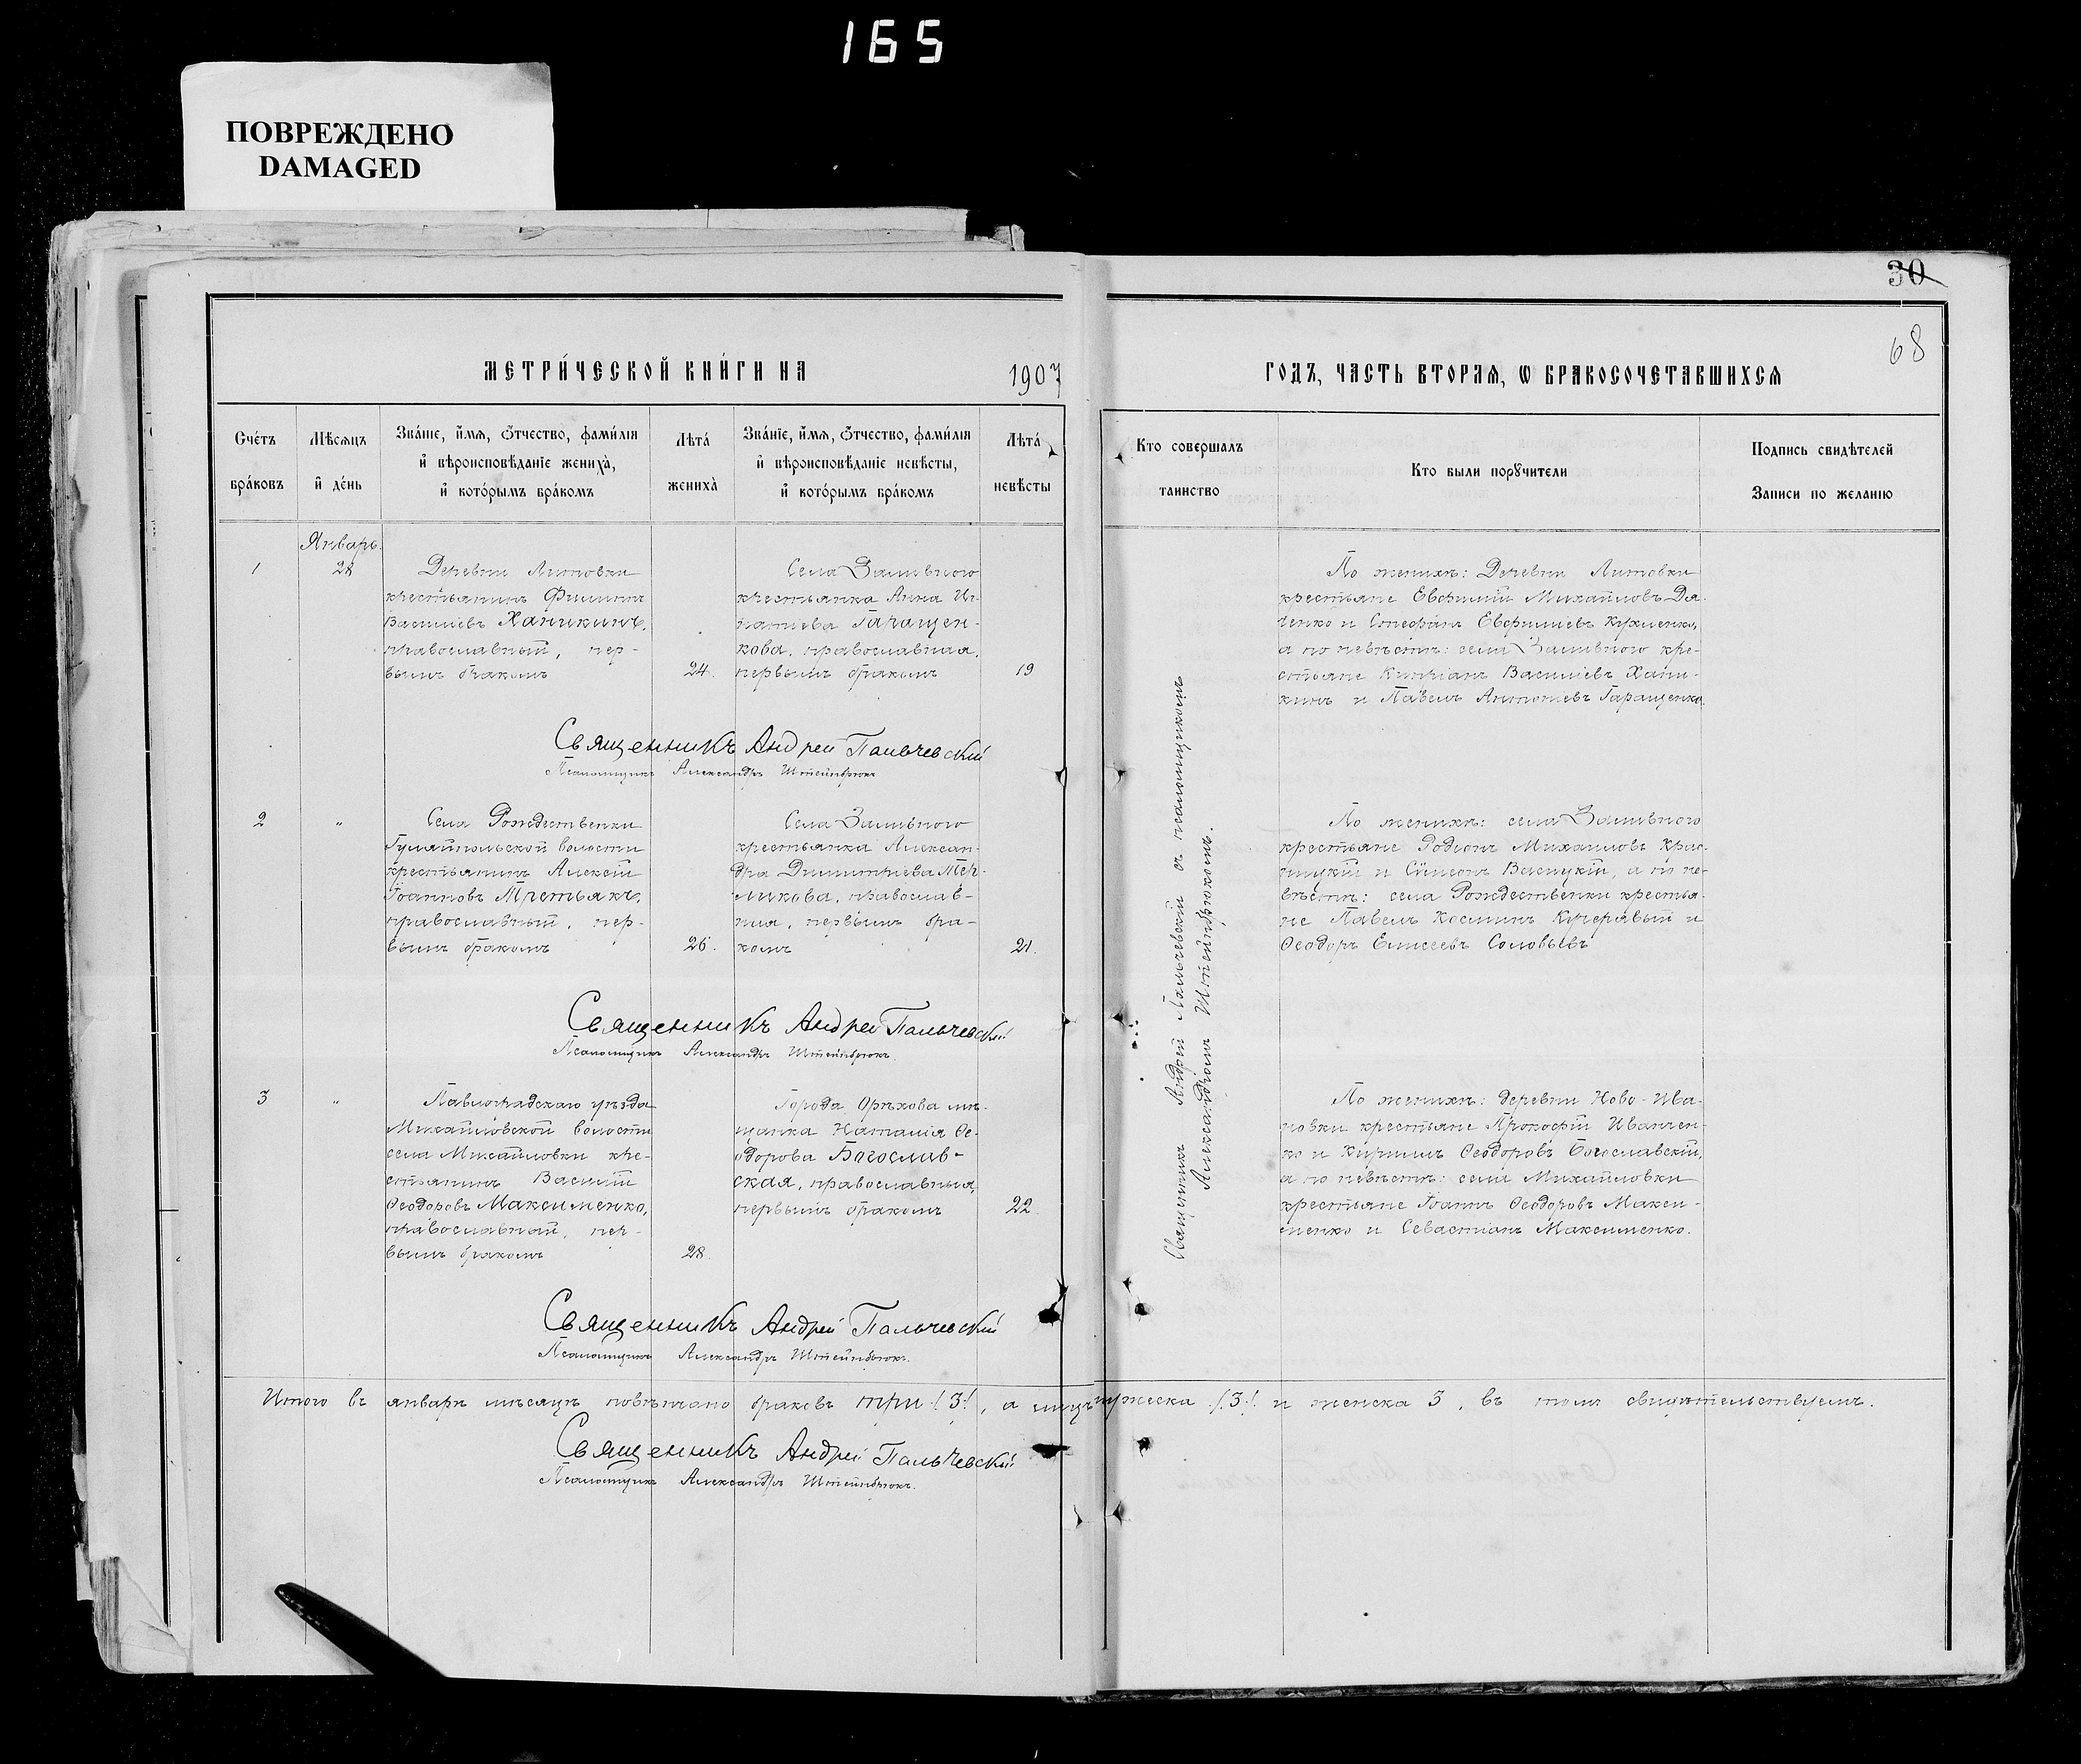 165
ПОВРЕЖДЕНО
DAMAGED
30
68
МЕТРИ́ЧЕСКОЙ КНИ́ГИ НА 1907
ГОДЪ, ЧАСТЬ ВТОРАѦ, Ѡ БРАКОСОЧЕТАВШИХСѦ
Сче́тъ
бра́ковъ
Мѣсѧцъ
и҆ де́нь
Зва́нїе, и҆́мѧ, ѻ҆́тчество, фами́лїѧ
и҆ вѣроисповѣ́данїе жениха̀,
и҆ кото́рымъ бра́комъ
Лѣта́
жениха̀
Зва́нїе, и҆́мѧ, ѻ҆́тчество, фами́лїѧ
и҆ вѣроисповѣ́данїе невѣ́сты,
и҆ кото́рымъ бра́комъ
Лѣта́
невѣ́сты
Кто совершалъ
таинство
Кто были порꙋчители
Подпись свидѣтелей
Записи по желанїю
Январь.
1
28
Деревни Литовки
крестьянинъ Филиппъ
Васильевъ Ханикинъ,
православный, пер-
вымъ бракомъ
24.
Села Заливного
крестьянка Анна Иг-
натьева Гаращен-
кова, православная,
первымъ бракомъ
19
По женихѣ: Деревни Литовки
крестьяне Евфимій Михайловъ Дя-
ченко и Стефанъ Евфиміевъ Кухленко,
а по невѣстѣ: села Заливного кре-
стьяне Кипріанъ Васильевъ Хани-
кинъ и Павелъ Антоніевъ Гаращенко.
Священникъ Андрей Пальчевскій
Псаломщикъ Александръ Штейнбрюкъ
2
"
Села Рождественки
Гуляйпольской волости
крестьянинъ Алексій
Іоанновъ Третьякъ,
православный, пер-
вымъ бракомъ
25.
Села Заливного
крестьянка Алексан-
дра Димитріева Тер-
ликова, православ-
ная, первымъ бра-
комъ
21.
По женихѣ: села Заливного
крестьяне Родіонъ Михайловъ Крас-
ицкій и Симеонъ Васицкій, а по не-
вѣстѣ: села Рождественки крестья-
не Павелъ Косминъ Кучерявый и
Ѳеодоръ Елисеевъ Соловьёвъ
Священникъ Андрей Пальчевскій
Псаломщикъ Александръ Штейнбрюкъ.
3
"
Павлоградскаго уѣзда
Михайловской волости
села Михайловки кре-
стьянинъ Василій
Ѳеодоровъ Максименко,
православный, пер-
вымъ бракомъ
28.
Города Орѣхова мѣ-
щанка Наталія Ѳе-
одорова Богослав-
ская, православная,
первымъ бракомъ
22.
По женихѣ: деревни Ново-Ива-
новки крестьяне Прокофій Иванчен-
ко и Кириллъ Ѳеодоровъ Богославскій,
а по невѣстѣ: села Михайловки
крестьяне Іоаннъ Ѳеодоровъ Макси-
менко и Севастіанъ Максименко.
Священникъ Андрей Пальчевскій
Псаломщикъ Александръ Штейнбрюкъ.
Священникъ Андрей Пальчевскій съ псаломщикомъ
Александромъ Штейнбрюкомъ.
Итого въ январѣ мѣсяцѣ повѣнчано браковъ три /3/, а лицъ мужеска /3/ и женска 3, въ томъ свидѣтельствуемъ.
Священникъ Андрей Пальчевскій
Псаломщикъ Александръ Штейнбрюкъ.